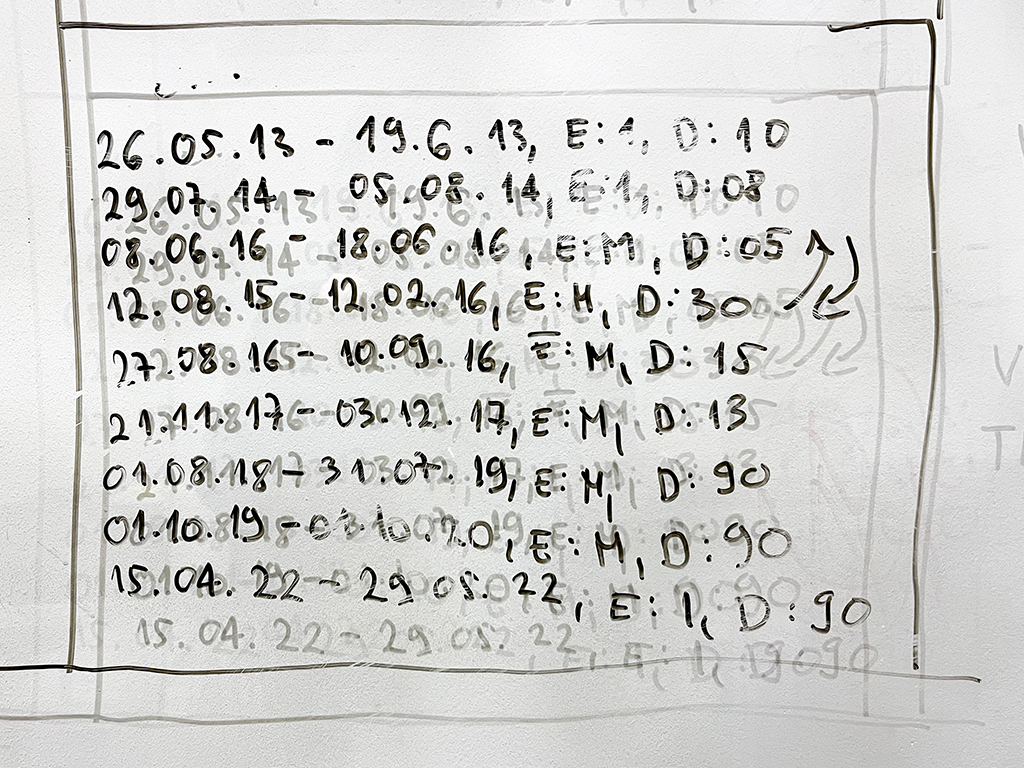 26.05.13 - 19.6.13, E:1, D:10
29.07.14 - 05.08.14, E:1, D:08
08.06.16 - 18.06 16, E:M, D:05
12.08.15 - 12.02.16, E:M, D:30
27.08.16 - 10.09.16, E:M, D:15
21.11.17 - 03.12.17, E:M, D:135
01.08.18 - 31.07.19, E:M, D:90
01.10.19 - 01.10.20, E:M, D:90
15.04.22 - 29.05.22, E:1, D:90